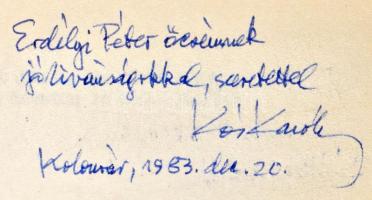 Erdélyi Péter öcsémnek
jókívánságokkal, szeretettel
Kós Károly
Kolozsvár, 1983. dec. 20.